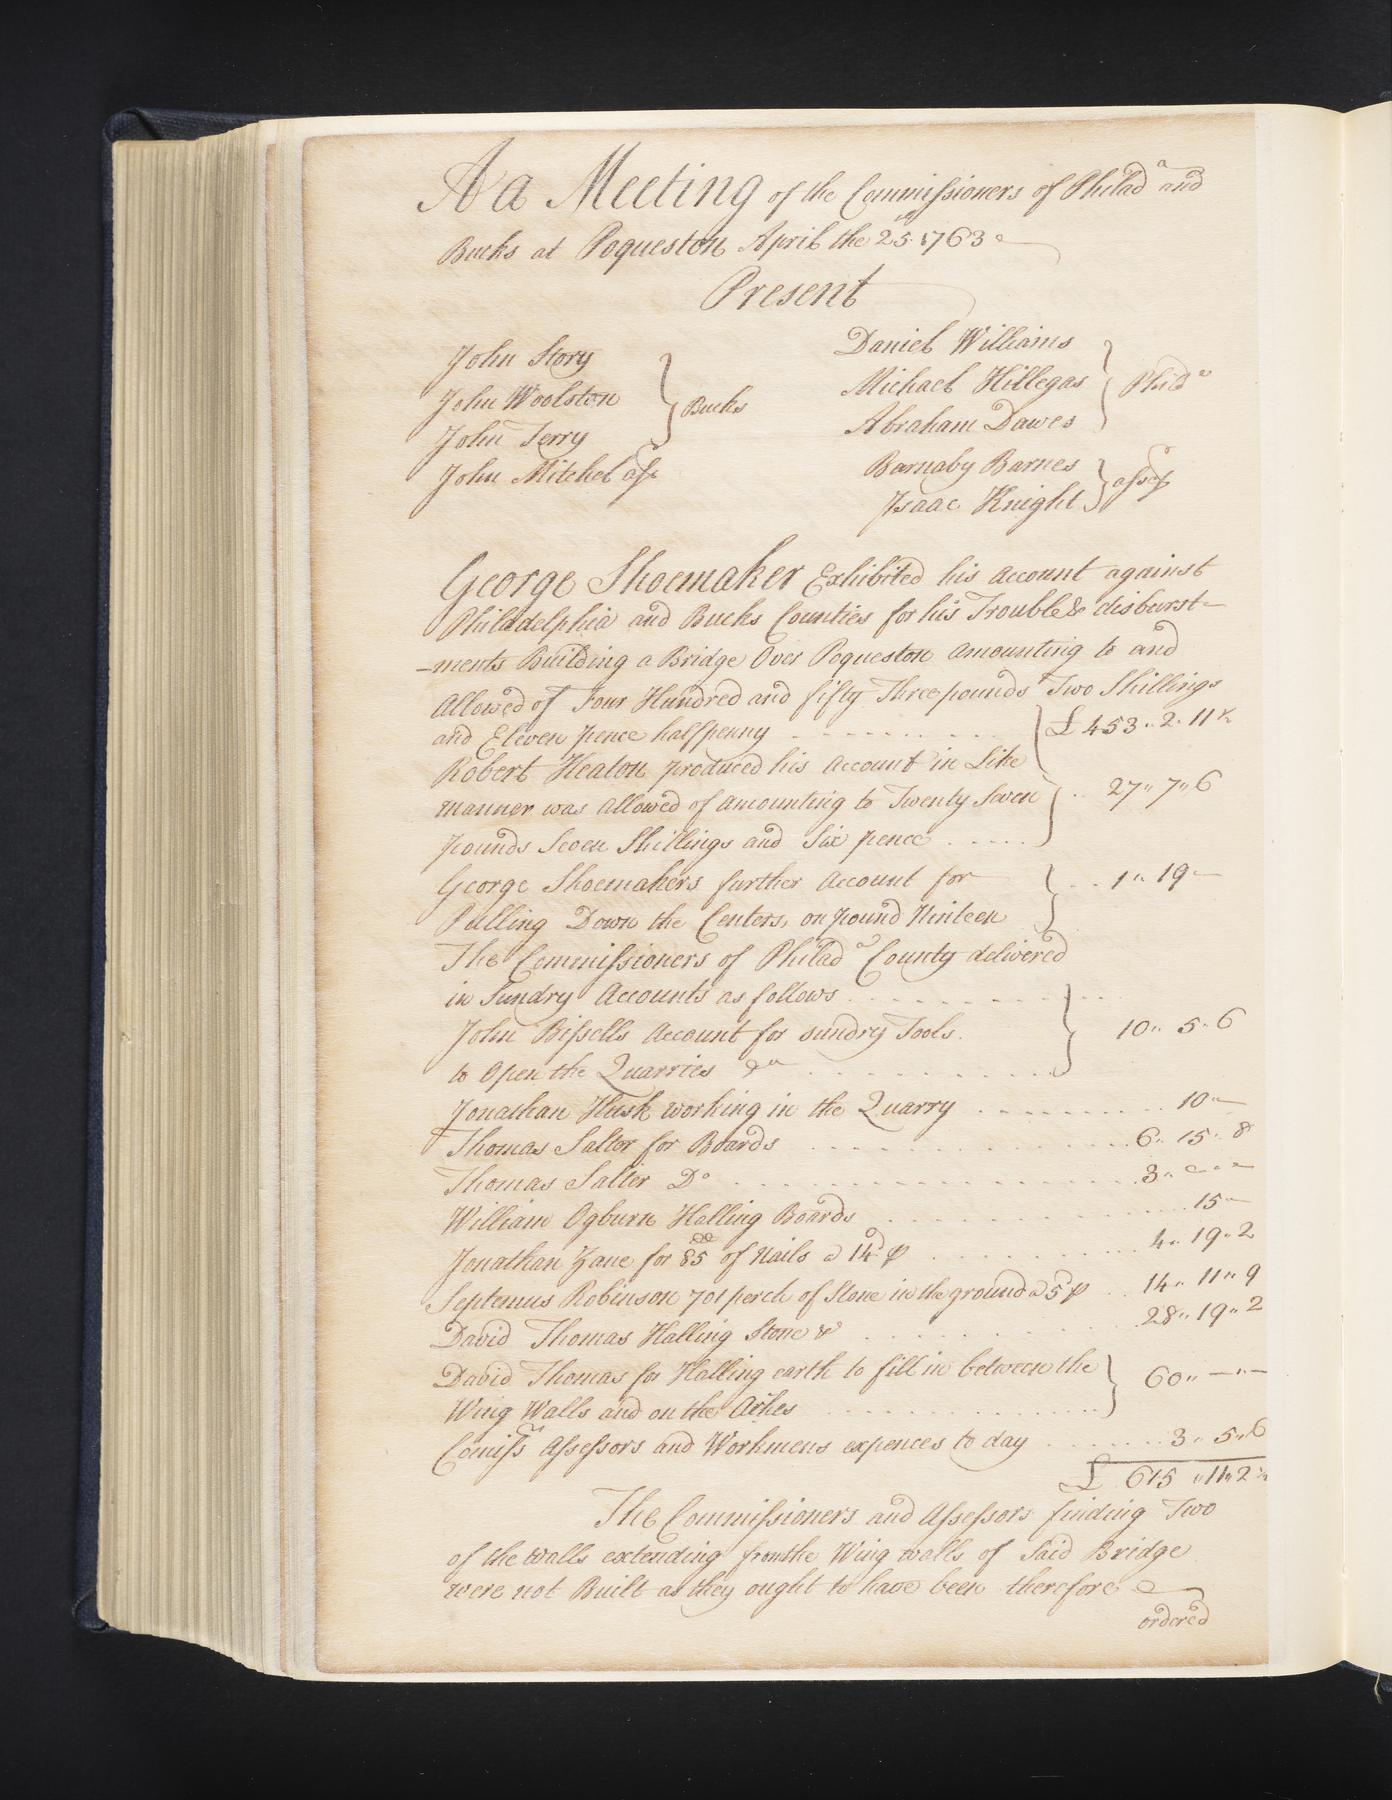 At a Meeting of the Commissioners of Philad.a and
Bucks at Poqueston April the 25th 1763
Present
John Story
John Woolston
John Terry
Bucks
John Mitchel asss
Daniel Williams
Michael Hillegas
Abraham Dawes
Philda
Barnaby Barnes
Isaac Knight
assrs
George Shoemaker Exhibited his Account against
Philadelphia and Bucks Counties for his Trouble & disburst=
=ments Building a Bridge Over Poqueston amounting to and
Allowed of Four Hundred and fifty Three pounds Two Shillings
and Eleven pence halfpenny £453..2..11½
Robert Heaton produced his Account in Like
manner was allowed of amounting to Twenty Seven
pounds Seven Shillings and Six pence 27..7..6
George Shoemakers further Account for
Pulling Down the Centers, on pound Ninteen 1..19..
The Commissioners of Philada County delivered
in Sundry Accounts as follows
John Bissells Account for sundry Tools
to Open the Quarries &ca 10..5..6
Jonathan Husk working in the Quarry 10..
Thomas Salter for Boards 6..15..8
Thomas Salter Do 3..
William Ogburn Halling Boards 15..
Jonathan Zane for 85 of Nails a 14d ⅌ 4..19..2
Septemus Robinson 701 perch of Stone in the ground a 5d ⅌ 14..11..9
David Thomas Halling Stone & 28..19..2
David Thomas for Halling earth to fill in between the
Wing Walls and on the Arhes 60..—..—
Comissrs Assessors and Workmens expences to day 3..5..6
£ 615..11..2½
The Commissioners and Assessors finding Two
of the walls extending from the Wing walls of Said Bridge
were not Built as they ought to have been therefore
ordered